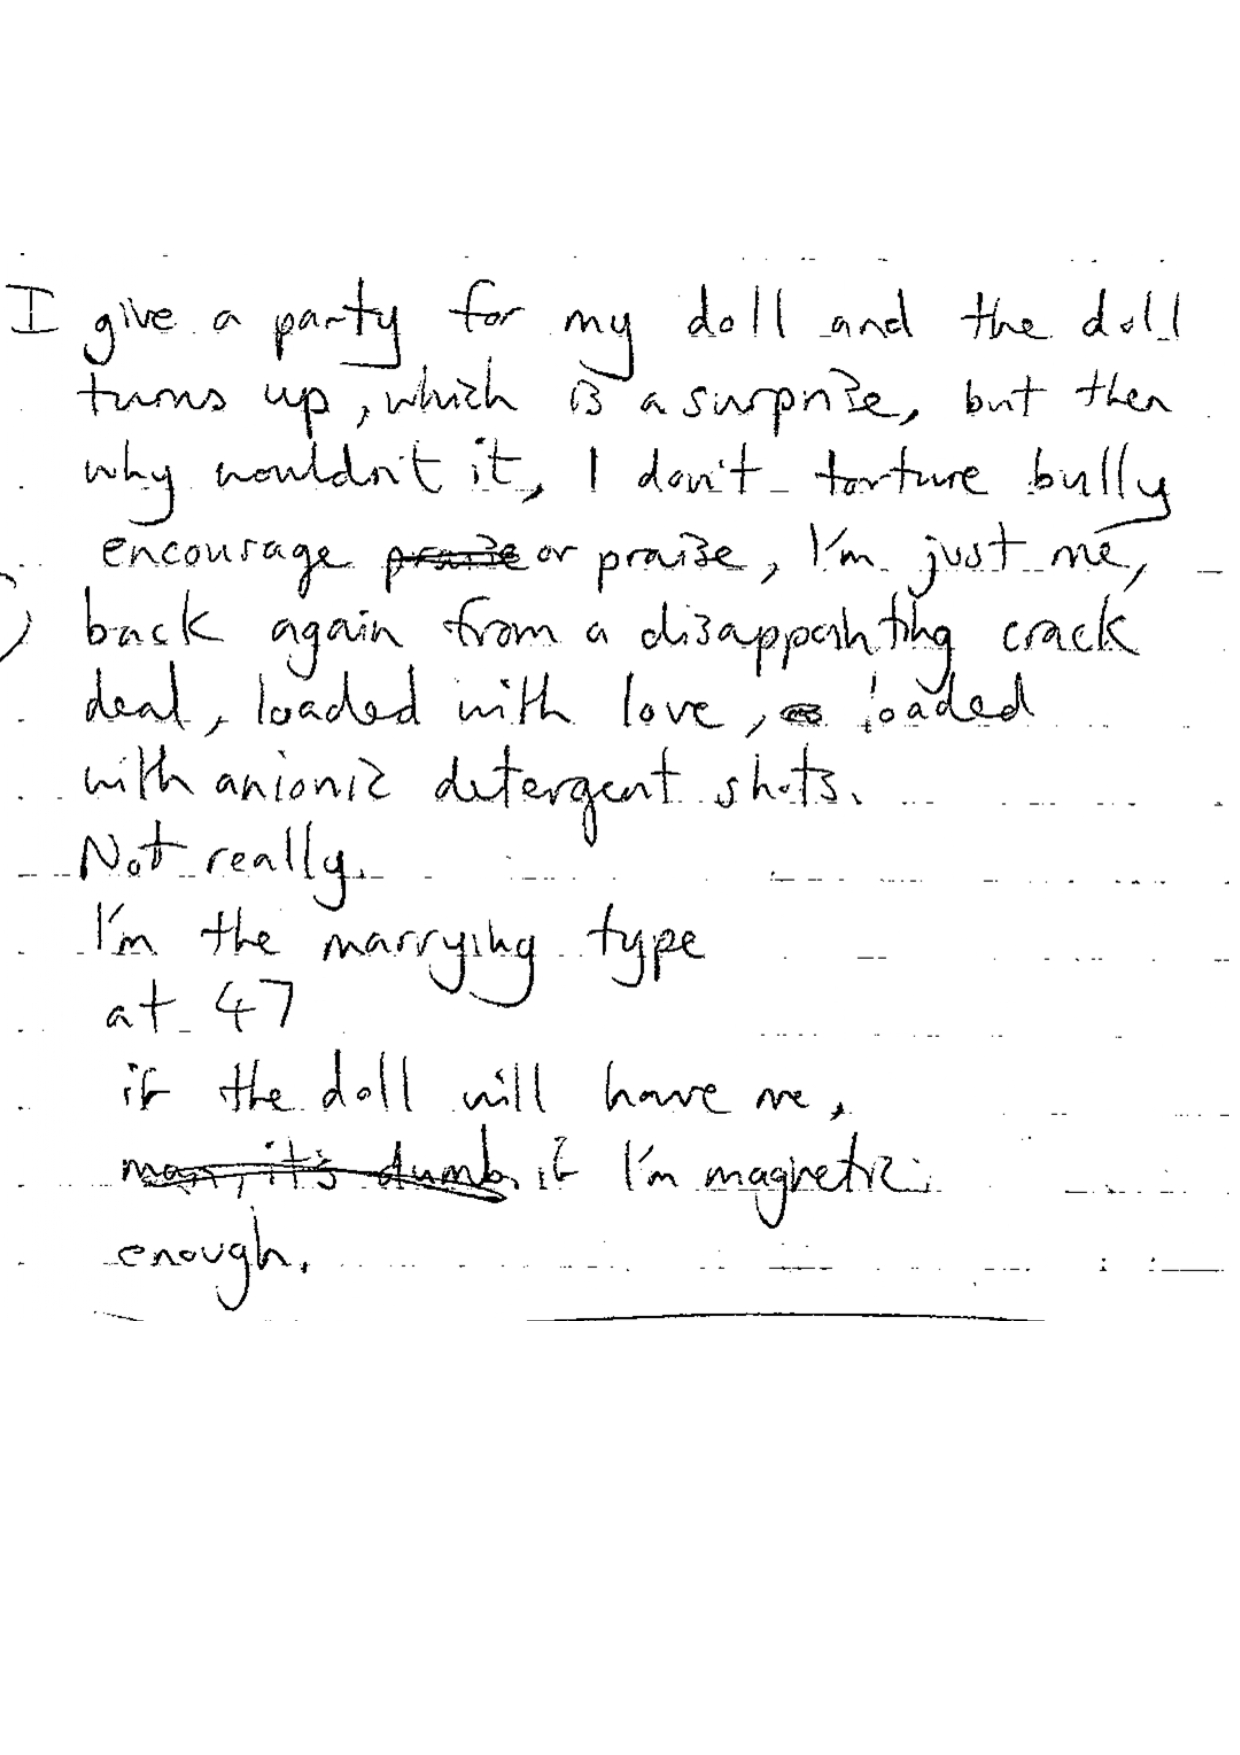 I give a party for my doll and the doll
turns up, which is a surprise, but then
why wouldn't it, I don't torture bully
encourage praise or praise, I'm just me,
back again from a disappointing crack
deal, loaded with love, loaded
with anionic detergent shots.
Not really.
I'm the marrying type
at 47
if the doll will have me,
man, it's dumb. if I'm magnetic
enough.